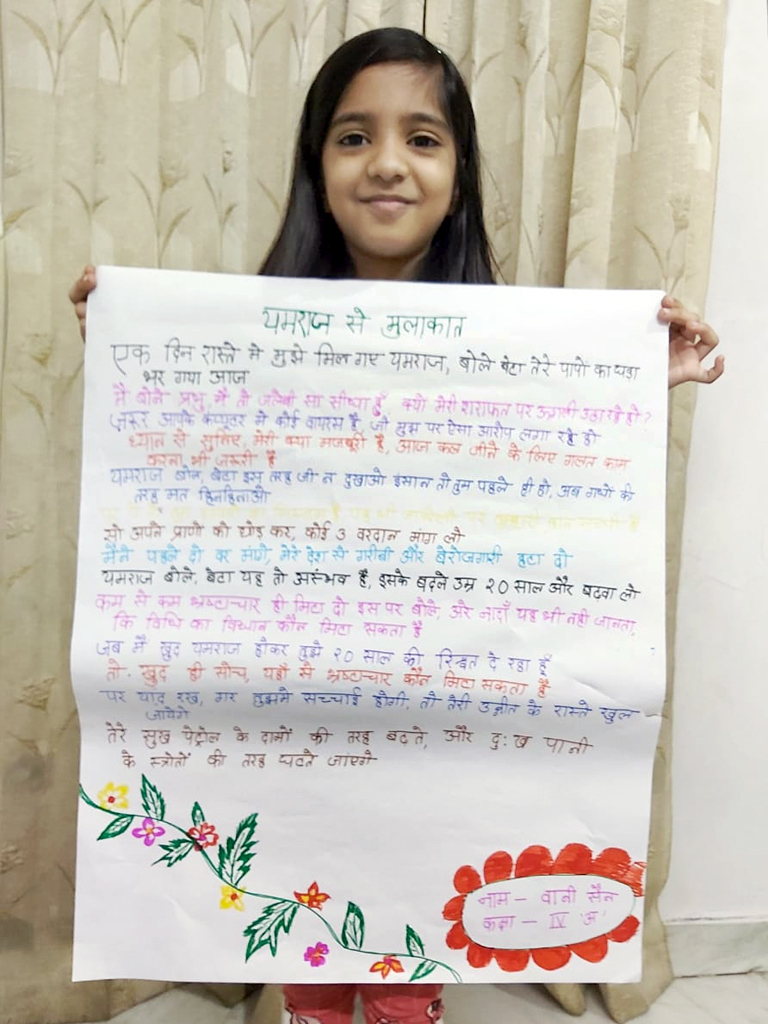 यमराज से मुलाकात
एक दिन रास्ते मे मुझे मिल गए यमराज, बोले बेटा तेरे पापो का घड़ा
भर गया आज
मै बोली प्रभु, मै तो जलेबी सा सीधा हूँ, क्यो मेरी शराफत पर ऊंगली उठा रहे हो?
ज़रूर आपके कंप्यूटर मे कोई वायरस है, जो मुझ पर ऐसा आरोप लगा रहे हो
ध्यान से सुनिए, मेरी क्या मजबूरी है, आज कल जीने के लिए गलत काम
करना भी जरूरी है
यमराज बोले, बेटा इस तरह जी न दुखाओ इंसान तो तुम पहले ही हो, अब गधो की
तरह मत हिनहिनाओ
सो अपने प्राणो को छोड़ कर, कोई 3 वरदान मांग लो
मैने पहले दो वर मांगे, मेरे देश से गरीबी और बेरोजगारी हटा दो
यमराज बोले, बेटा यह तो असंभव है, इसके बदले उम्र २० साल और बढवा लो
कम से कम भ्रष्टाचार ही मिटा दो इस पर बोले, अरे नादाँ यह भी नही जानता,
कि विधि का विधान कौन मिटा सकता है
जब मै खुद यमराज होकर तुझे २० साल की रिश्वत दे रहा हूँ
तो खुद ही सोच, यहाँ से भ्रष्टाचार कौन मिटा सकता है
पर याद रख, गर तुझमे सच्चाई होगी, तो तेरी उन्नति के रास्ते खुल
जायेंगे
तेरे सुख पेट्रोल के दामों की तरह बढते, और दुःख पानी
के स्त्रोतों की तरह घटते जाएंगे
नाम – वानी सैन
कक्षा – IV 'अ'